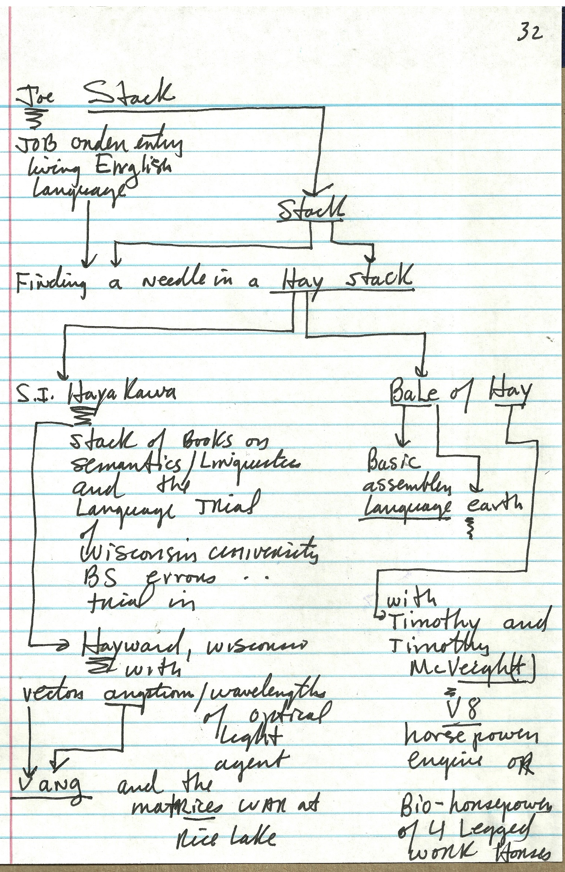 32
Joe Stack
JOB order entry
living English
Language
Stack
Finding a needle in a Hay stack
S.I. Hayakawa
Stack of Books on
semantics/Linquestics
and the
Language Trial
of
Wisconsin university
BS errors . .
trial in
Hayward, wisconsin
with
vectors angstrom/wavelengths
of optical
Light
agent
Vang and the
matrices WAR at
Rice Lake
BaLe of Hay
Basic
assembly
Language earth
with
Timothy and
Timothy
McVeigh(t)
V8
horsepower
engine OR
Bio-horsepower
of 4 Legged
work Horses